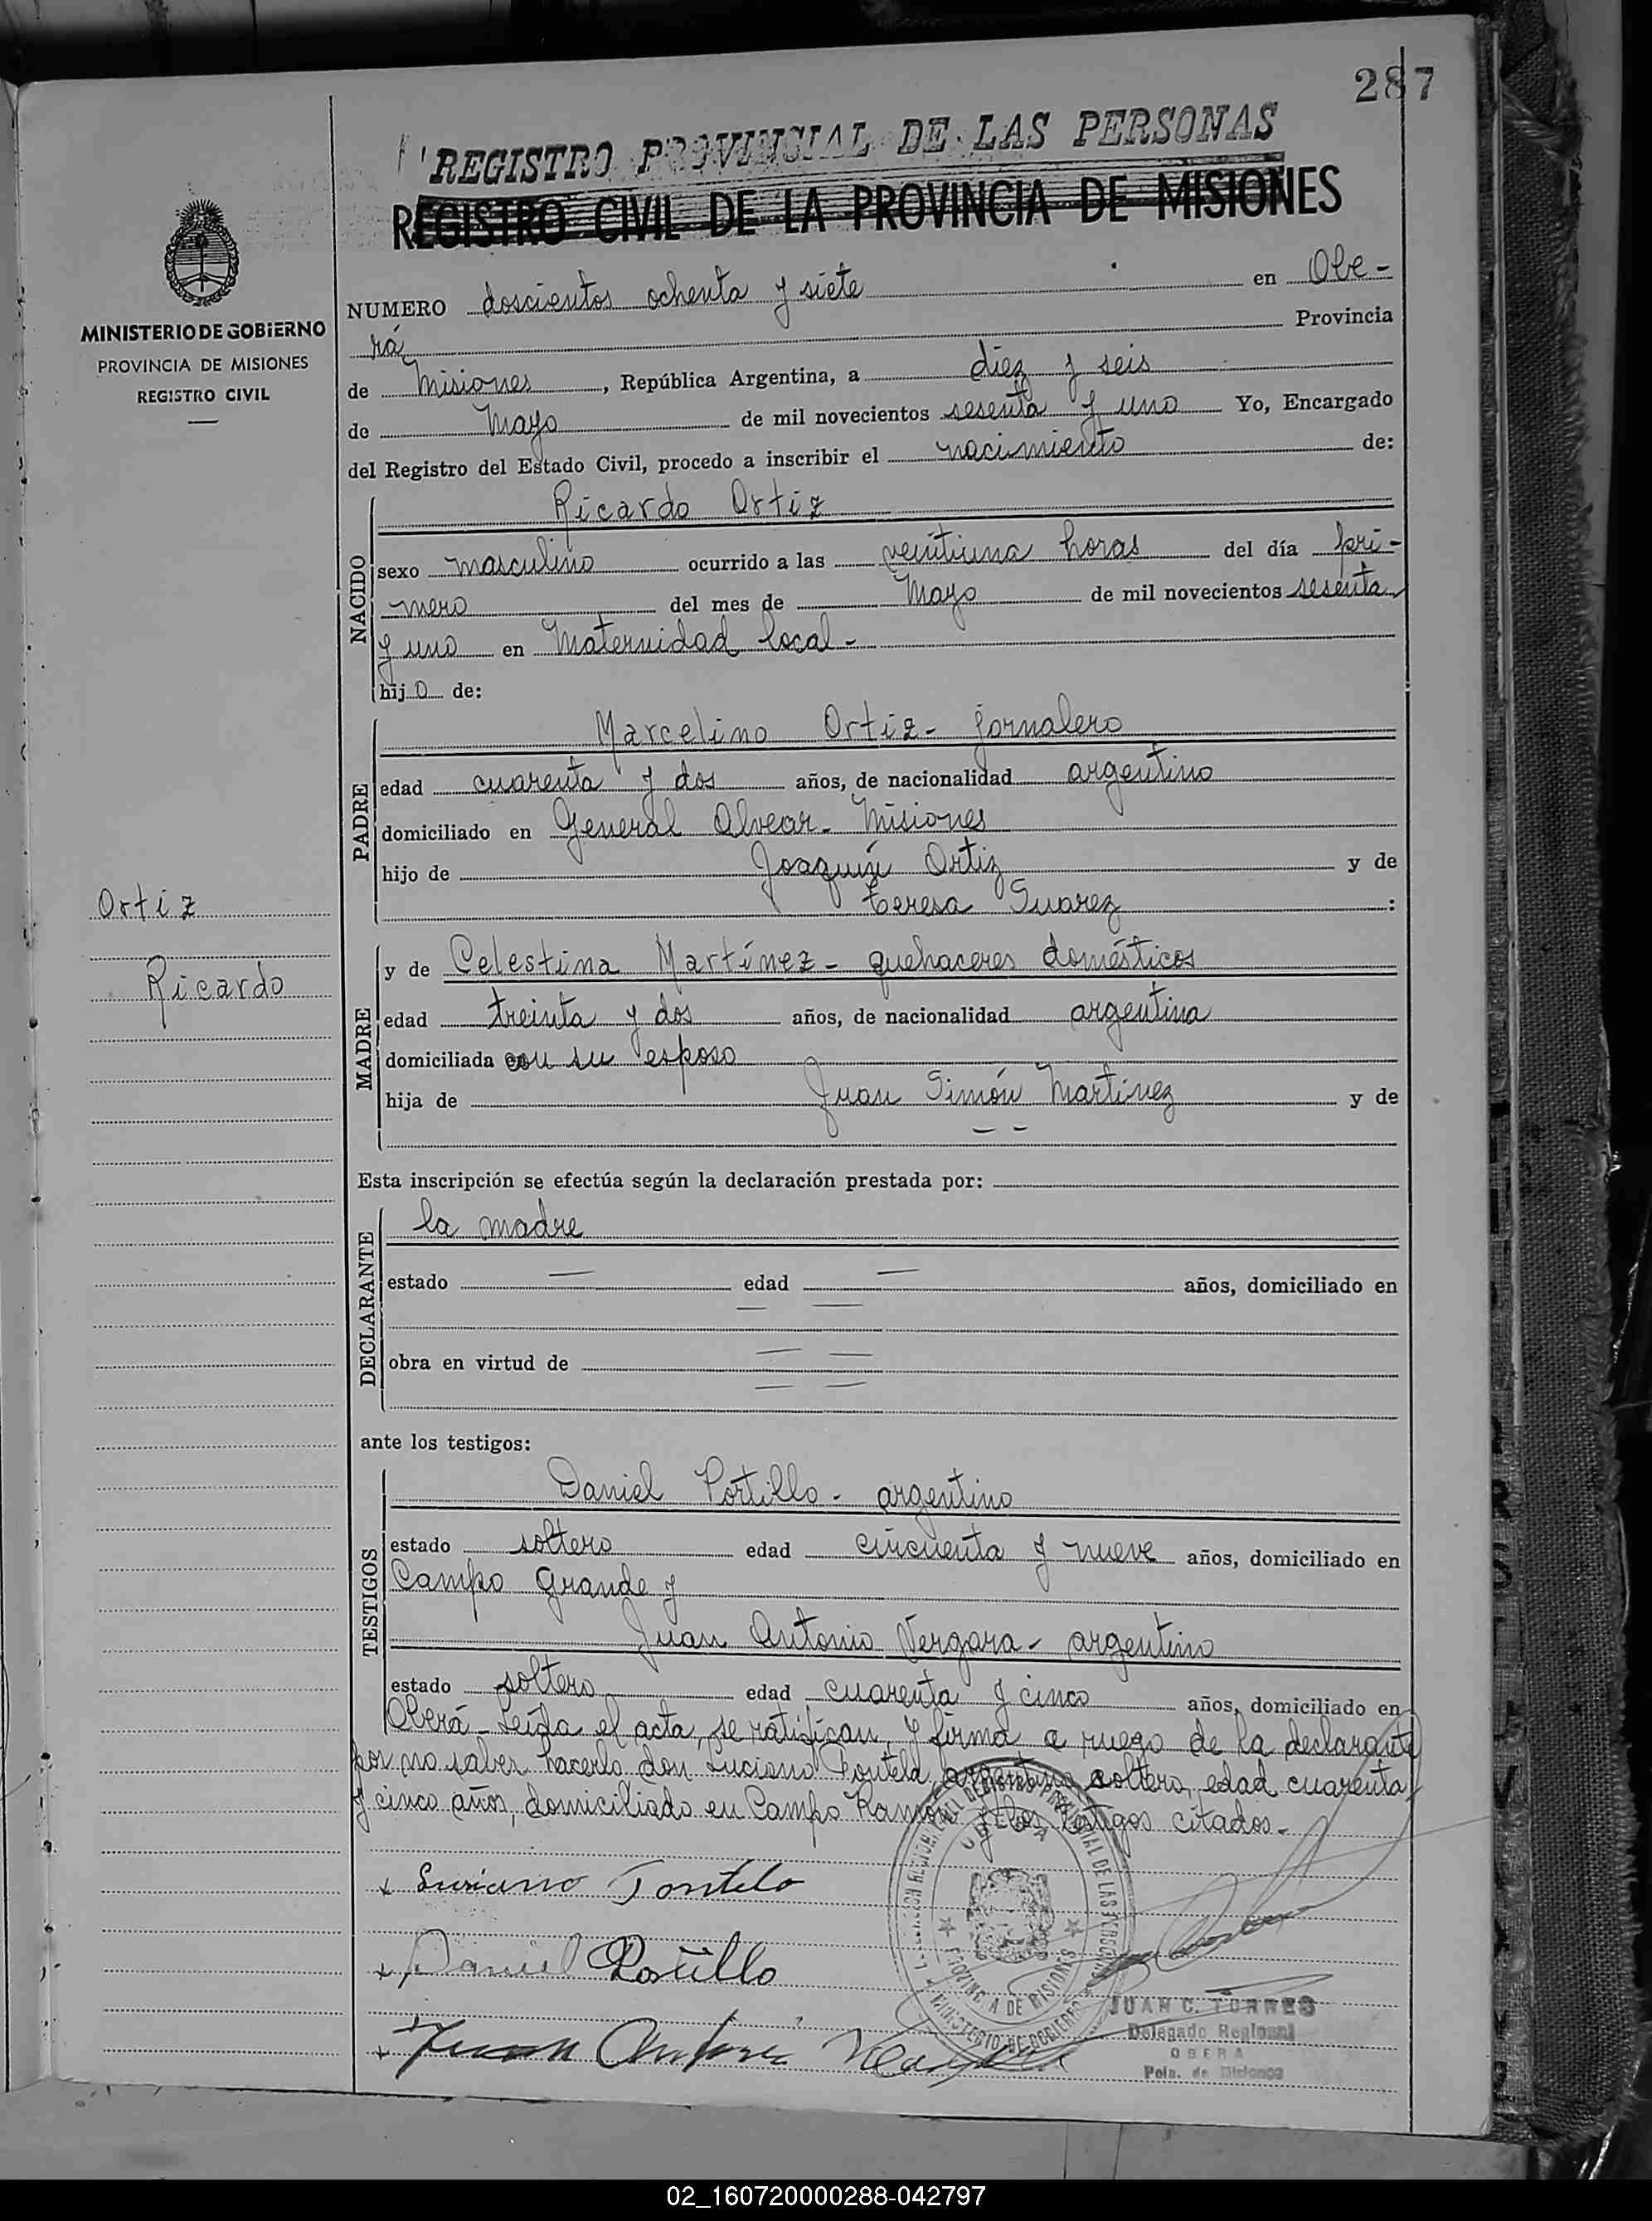 287
REGISTRO PROVINCIAL DE LAS PERSONAS
REGISTRO CIVIL DE LA PROVINCIA DE MISIONES
MINISTERIO DE GOBIERNO
PROVINCIA DE MISIONES
REGISTRO CIVIL
NUMERO doscientos ochenta y siete en Obe-
rá, Provincia
de Misiones, República Argentina, a diez y seis
de Mayo de mil novecientos sesenta y uno Yo, Encargado
del Registro del Estado Civil, procedo a inscribir el nacimiento de:
NACIDO
Ricardo Ortiz
sexo masculino ocurrido a las veintiuna horas del día pri-
mero del mes de Mayo de mil novecientos sesenta
y uno en Maternidad local-
hijo de:
PADRE
Marcelino Ortiz- jornalero
edad cuarenta y dos años, de nacionalidad argentino
domiciliado en General Alvear- Misiones
hijo de Joaquín Ortiz y de
teresa Suarez :
Ortiz
Ricardo
MADRE
y de Celestina Martínez- quehaceres domésticos
edad treinta y dos años, de nacionalidad argentina
domiciliada con su esposo
hija de Juan Simón Martínez y de
- -
Esta inscripción se efectúa según la declaración prestada por:
DECLARANTE
la madre
estado — edad — años, domiciliado en
— —
obra en virtud de — —
— —
ante los testigos:
TESTIGOS
Daniel Portillo- argentino
estado soltero edad cincuenta y nueve años, domiciliado en
Campo Grande y
Juan Antonio Vergara- argentino
estado soltero edad cuarenta y cinco años, domiciliado en
Oberá- Leída el acta, se ratifican, y firma a ruego de la declarante
por no saber hacerlo don Luciano Fontela, argentino soltero, edad cuarenta
y cinco años, domiciliado en Campo Ramón y los testigos citados.-
Luciano Fontela
Daniel Portillo
Juan Antonio Vergara
PROVINCIA DE MISIONES
MINISTERIO DE GOBIERNO
JUAN C. TORRES
Delegado Regional
OBERA
Pcia. de Misiones
02_160720000288-042797